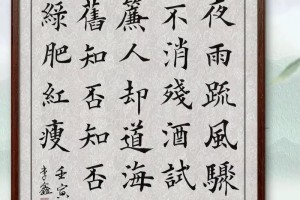 夜雨疏風驟
不消殘酒試
簾人却道海
舊知否知否
綠肥紅瘦
壬寅
李鑫